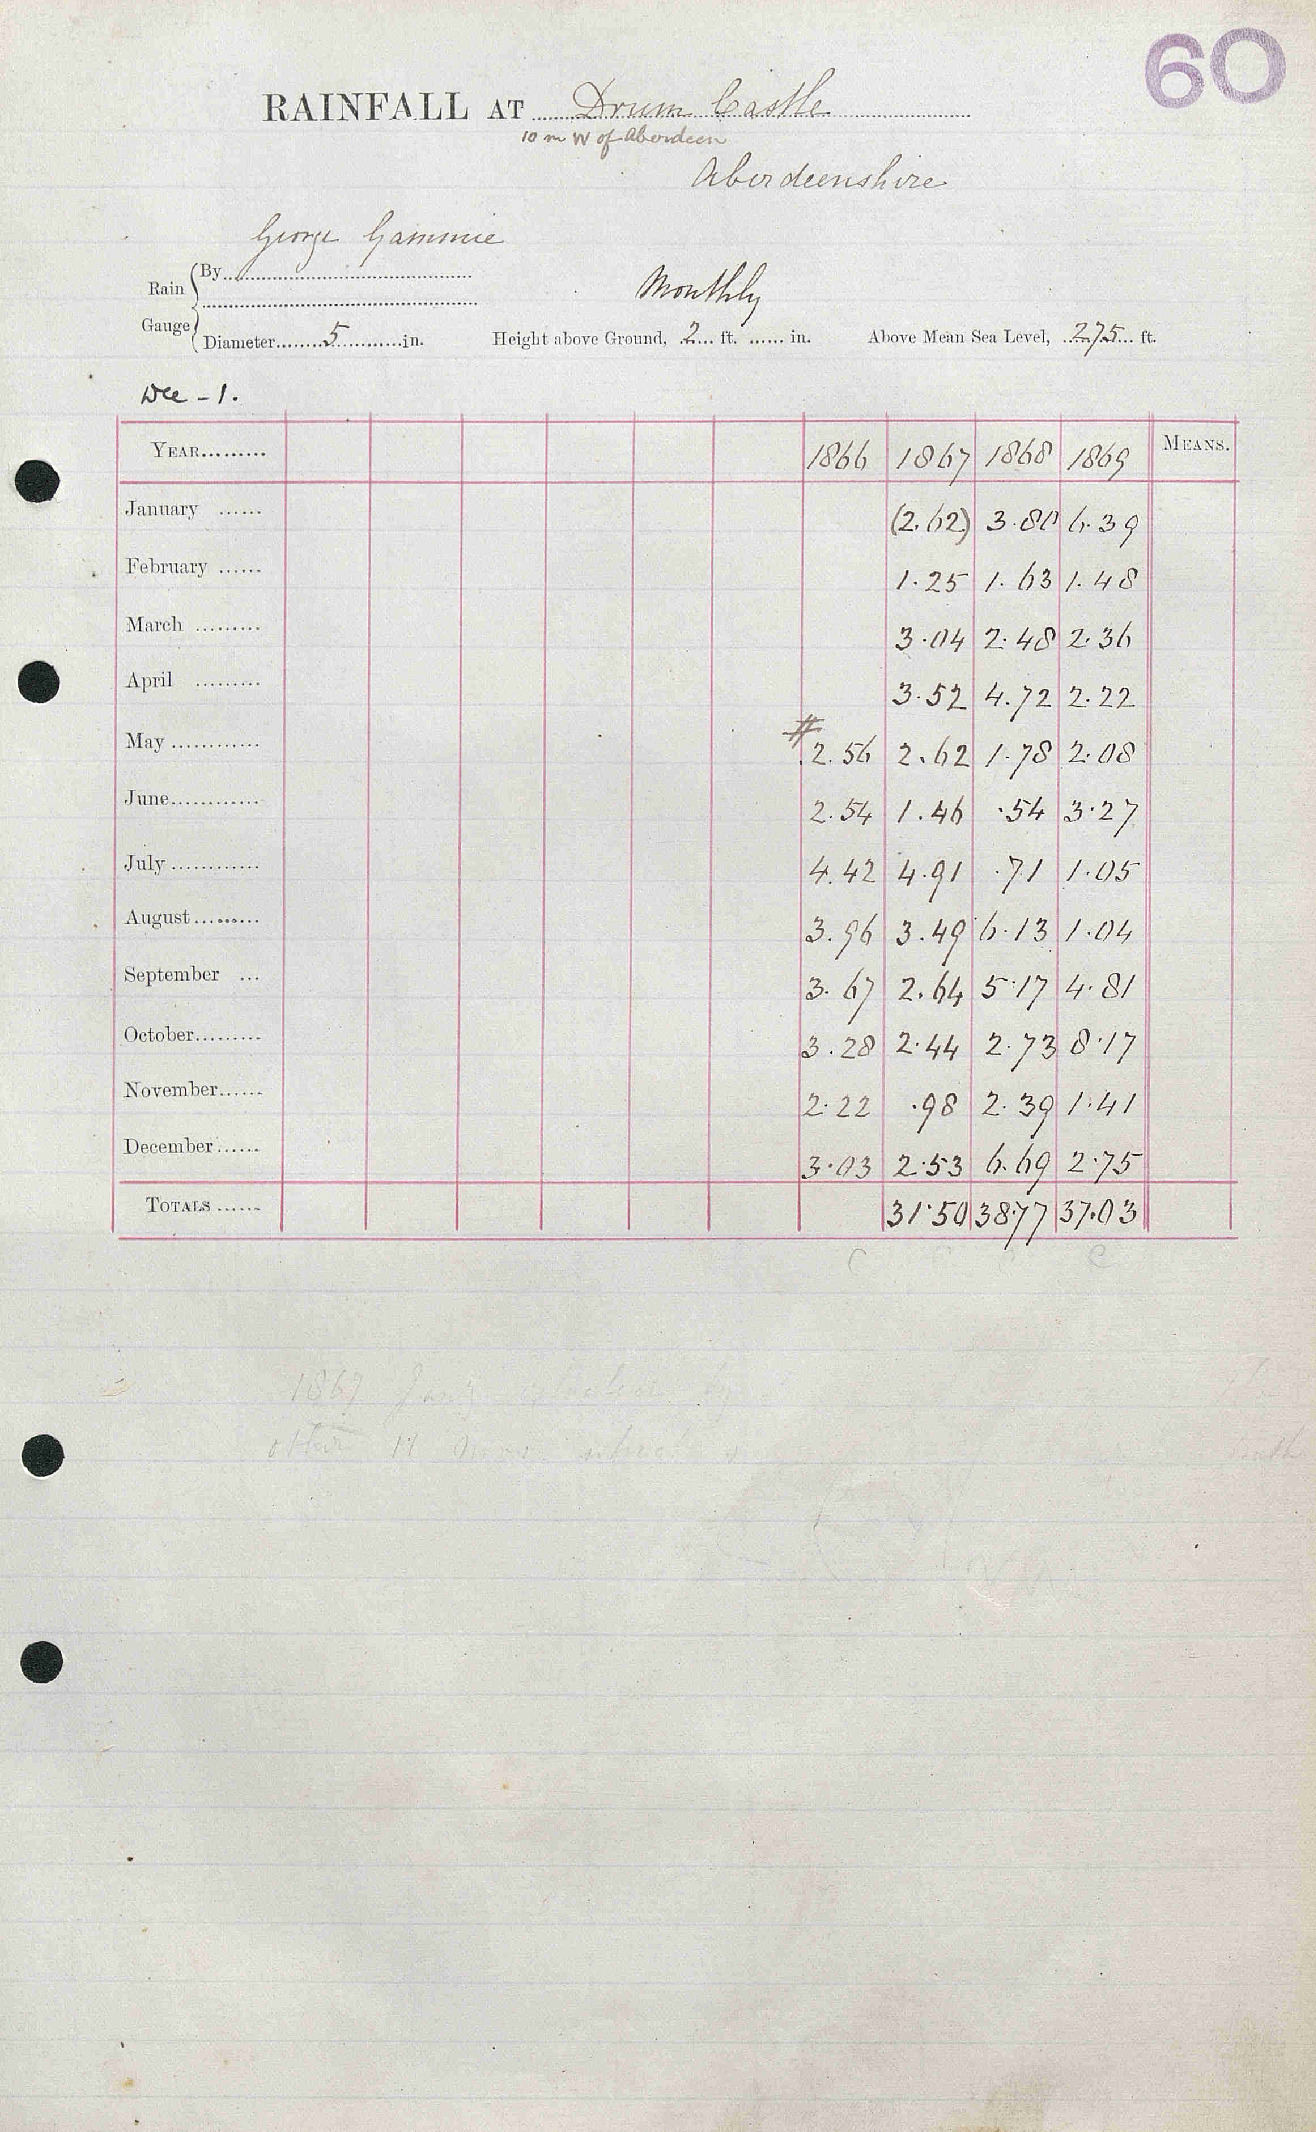 60
RAINFALL AT Drum Castle
10 m W of Aberdeen
Aberdeenshire
George Gammie
Rain Gauge
By
Monthly
Diameter 5 in. Height above Ground, 2 ft. in. Above Mean Sea Level, 275 ft.
Dee - 1.
YEAR 1866 1867 1868 1869 MEANS.
January (2.62) 3.80 6.39
February 1.25 1.63 1.48
March 3.04 2.48 2.36
April 3.52 4.72 2.22
#
May 2.56 2.62 1.78 2.08
June 2.54 1.46 .54 3.27
July 4.42 4.91 .71 1.05
August 3.96 3.49 6.13 1.04
September 3.67 2.64 5.17 4.81
October 3.28 2.44 2.73 8.17
November 2.22 .98 2.39 1.41
December 3.03 2.53 6.69 2.75
TOTALS 31.50 38.77 37.03
C C
1867 Jany by
other 11 mos.